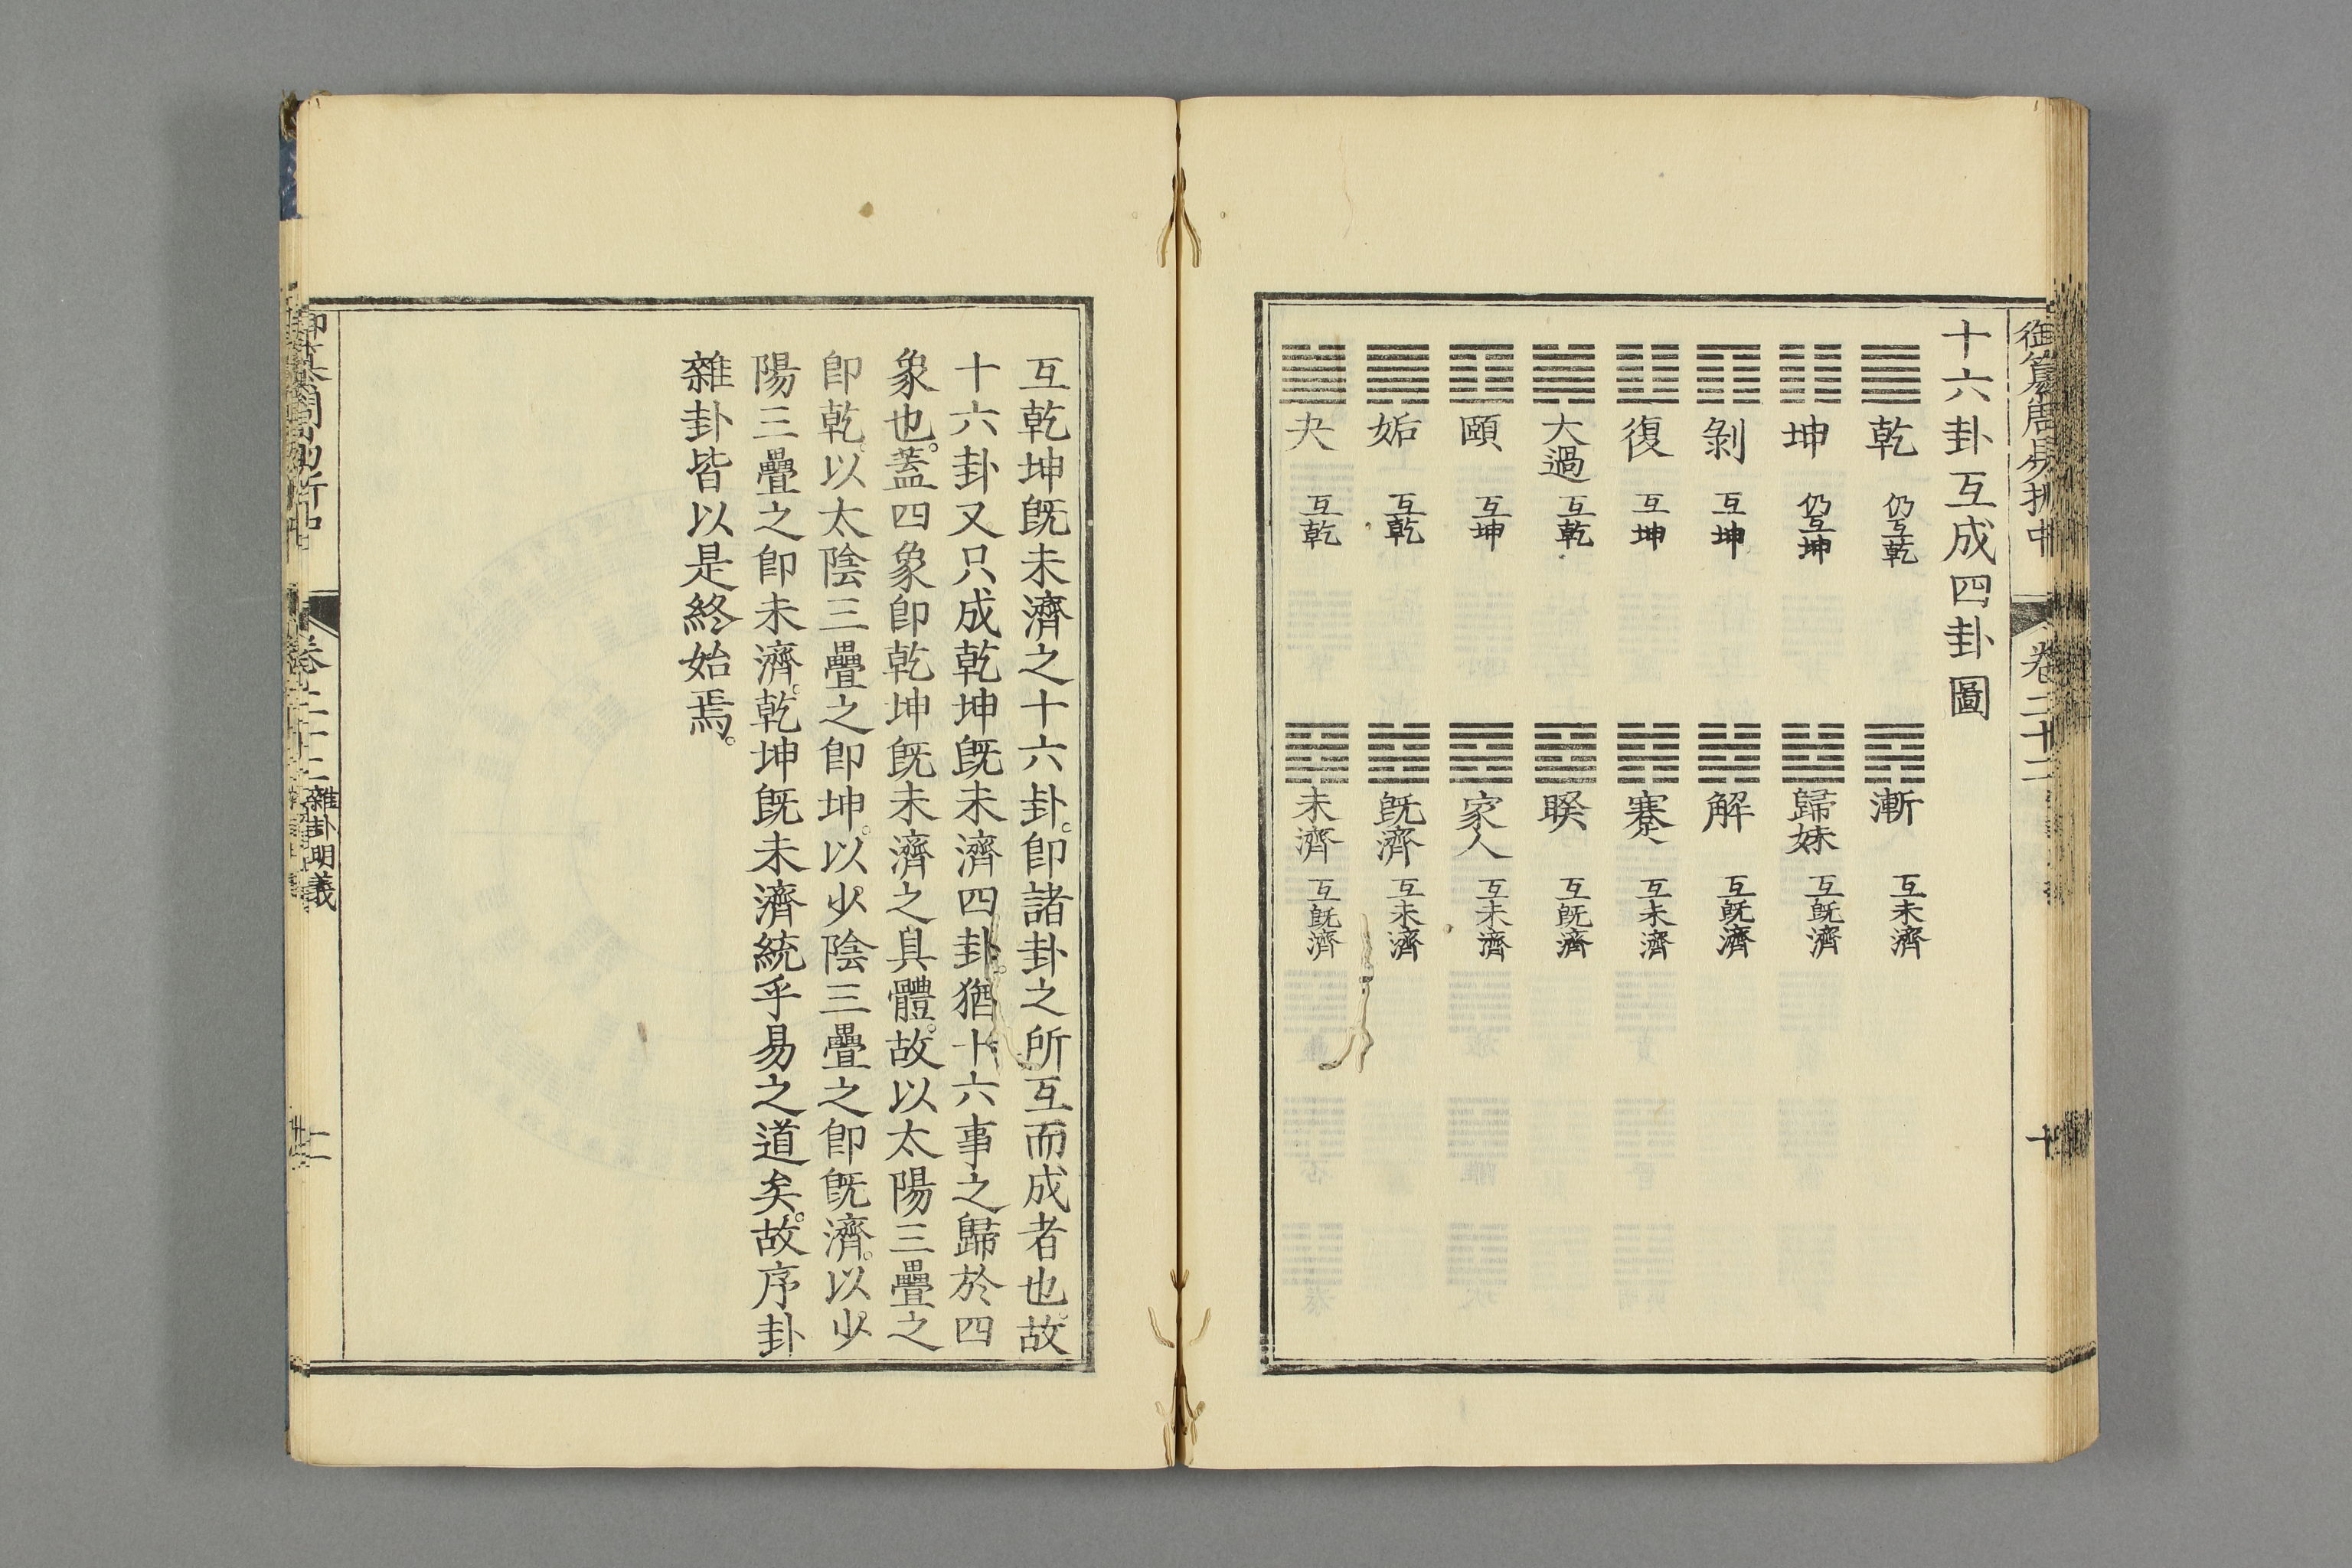 御纂周易折中
卷二十二
十六卦互成四卦圖
乾 仍互乾
漸 互未濟
坤 仍互坤
歸妹 互旣濟
剝 互坤
解 互旣濟
復 互坤
蹇 互未濟
大過 互乾
睽 互旣濟
頤 互坤
家人 互未濟
姤 互乾
旣濟 互未濟
夬 互乾
未濟 互旣濟
互乾坤旣未濟之十六卦。卽諸卦之所互而成者也。故
十六卦又只成乾坤旣未濟四卦。猶十六事之歸於四
象也。蓋四象卽乾坤旣未濟之具體。故以太陽三疊之
卽乾。以太陰三疊之卽坤。以少陰三疊之卽旣濟。以少
陽三疊之卽未濟。乾坤旣未濟統乎易之道矣。故序卦
雜卦皆以是終始焉。
卷二十二 雜卦明義